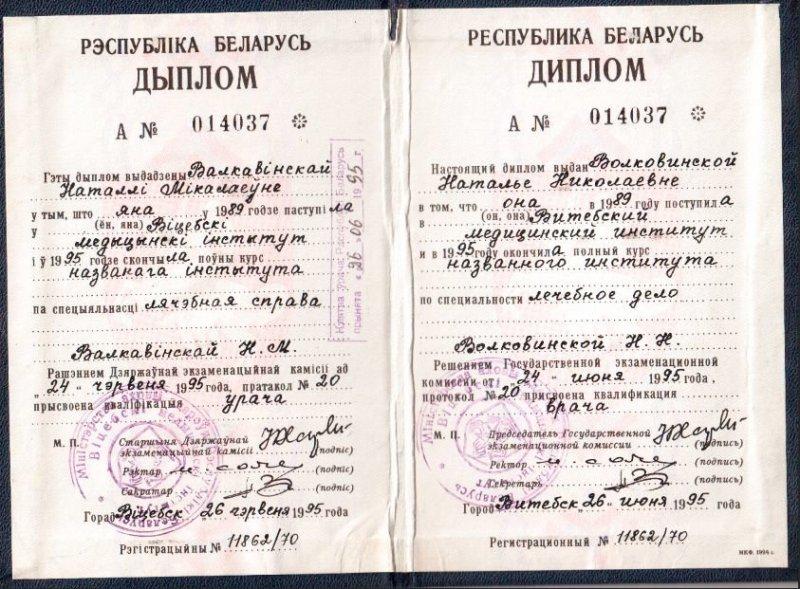 РЭСПУБЛІКА БЕЛАРУСЬ
ДЫПЛОМ
А № 014037
Гэты дыплом выдадзены Валкавінскай
Наталлі Мікалаеўне
у тым, што яна у 1989 годзе паступіла
(ён, яна)
у Віцебскі
медыцынскі інстытут
і ў 1995 годзе скончыла поўны курс
названага інстытута
па спецыяльнасці лячэбная справа
Валкавінскай Н. М.
Рашэннем Дзяржаўнай экзаменацыйнай камісіі ад
„24" чэрвеня 1995 года, пратакол № 20
прысвоена кваліфікацыя урача
М. П. Старшыня Дзяржаўнай
экзаменацыйнай камісіі (подпіс)
Рэктар (подпіс)
Сакратар (подпіс)
Горад Віцебск „26 чэрвеня 1995 года
Рэгістрацыйны № 11862/70
прынята «26» 06 1995 г.
РЕСПУБЛИКА БЕЛАРУСЬ
ДИПЛОМ
А № 014037
Настоящий диплом выдан Волковинской
Наталье Николаевне
в том, что она в 1989 году поступила
(он, она)
в Витебский
медицинский институт
и в 1995 году окончила полный курс
названного института
по специальности лечебное дело
Волковинской Н. Н.
Решением Государственной экзаменационной
комиссии от „24" июня 1995 года,
протокол № 20 присвоена квалификация
врача
М. П. Председатель Государственной
экзаменационной комиссии (подпись)
Ректор (подпись)
Секретарь (подпись)
Город Витебск „26" июня 1995 года
Регистрационный № 11862/70
МКФ. 1994 г.